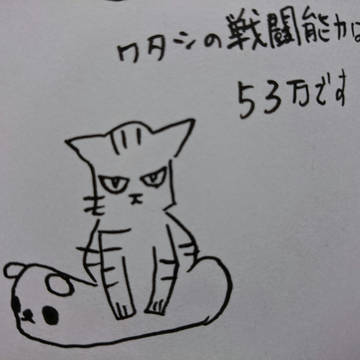 ワタシの戦闘能力は
53万です